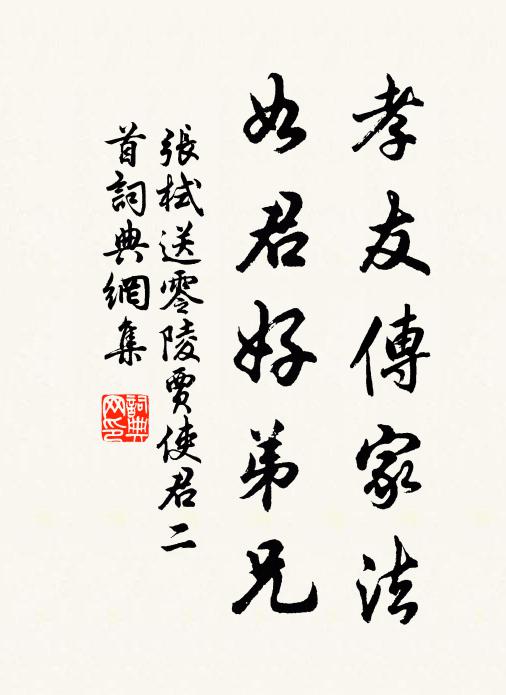 孝友傳家法
如君好弟兄
張栻送零陵賈使君二
首詞典網集
詞典
網印